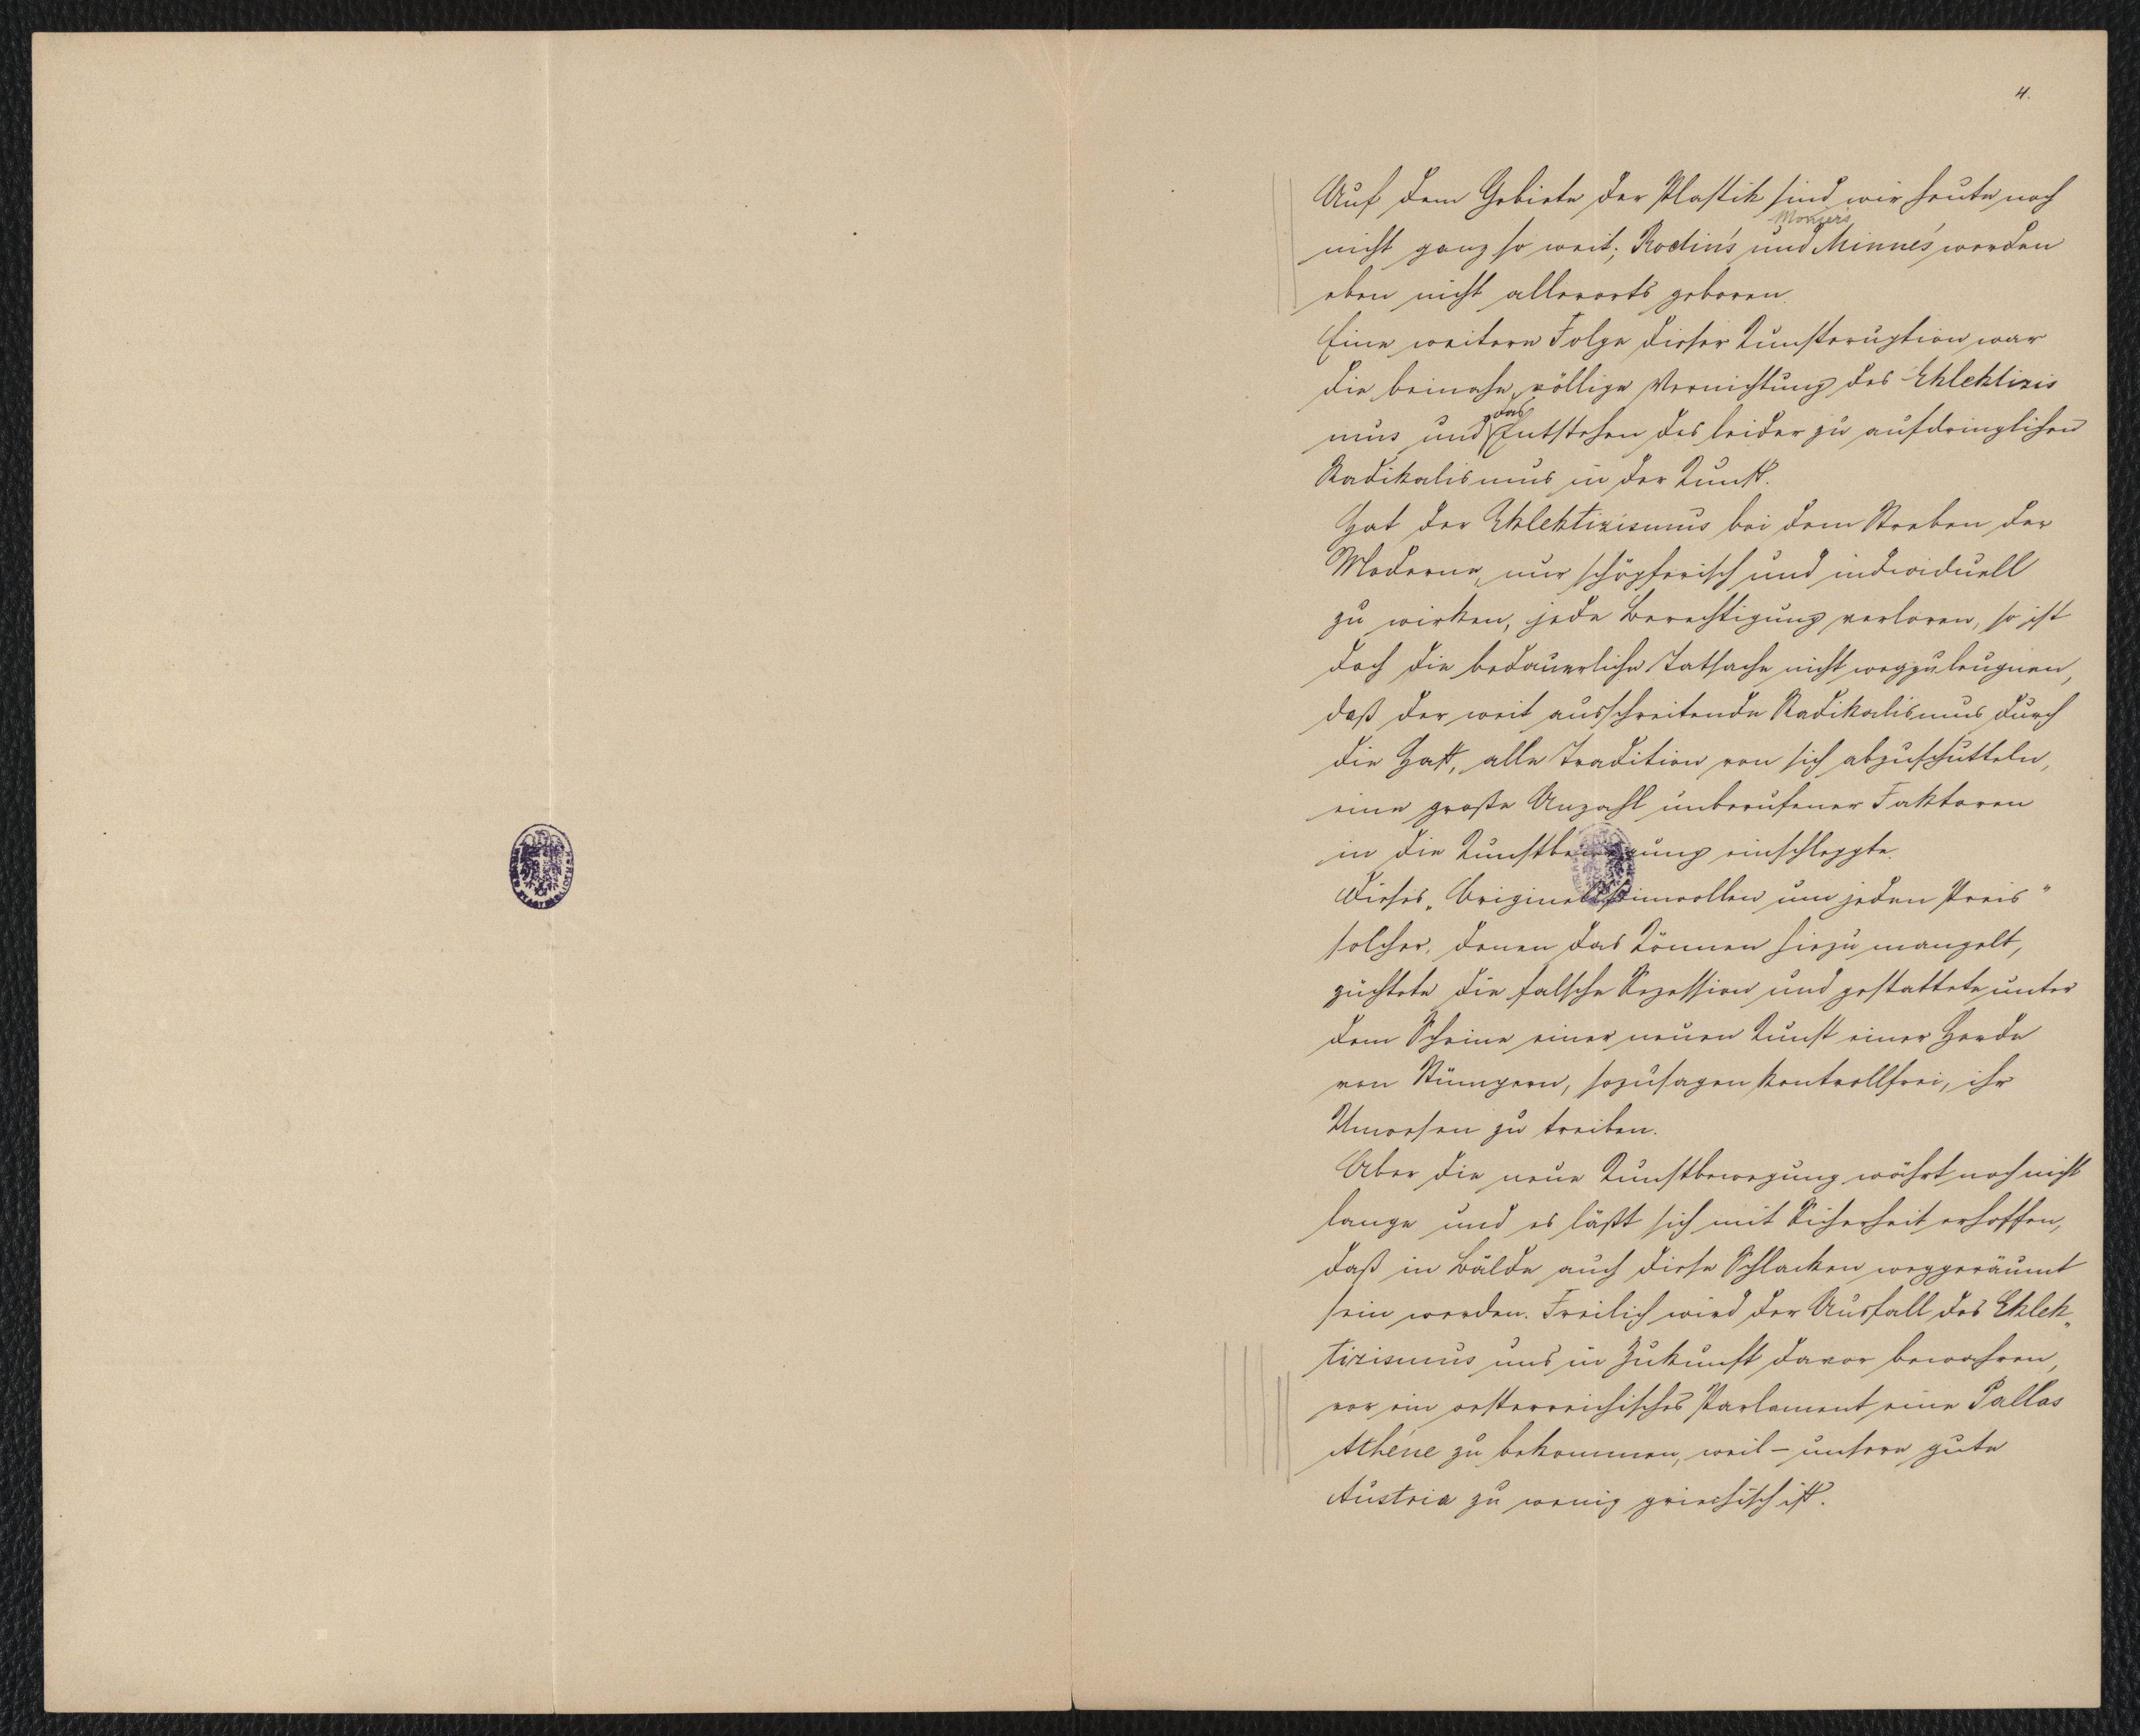 4.
Auf dem Gebiete der Plastik sind wir heute noch
nicht ganz so weit; Rodin's und Minne's werden
eben nicht allerorts geboren.
Eine weitere Folge dieser Kunsteruption war
die beinahe völlige Vernichtung des Eklektizis
mus und das Entstehen des leider zu aufdringlichen
Radikalismus in der Kunst.
Hat der Eklektizismus bei dem Streben der
Moderne, nur schöpferisch und individuell
zu wirken, jede Berechtigung verloren, so ist
doch die bedauerliche Tatsache nicht wegzuleugnen,
daß der weit ausschreitende Radikalismus durch
die Hast, alle Tradition von sich abzuschütteln,
eine große Anzahl unberufener Faktoren
in die Kunstbewegung einschleppte.
Dieses „Originellseinwollen um jeden Preis"
solcher, denen das Können hiezu mangelt,
züchtete die falsche Sezession und gestattete unter
dem Scheine einer neuen Kunst einer Herde
von Stümpern, sozusagen kontrollfrei, ihr
Unwesen zu treiben.
Aber die neue Kunstbewegung währt noch nicht
lange und es läßt sich mit Sicherheit erhoffen,
daß in Bälde auch diese Schlacken weggeräumt
sein werden. Freilich wird der Ausfall des Eklek„
tizismus uns in Zukunft davor bewahren,
vor ein oesterreichisches Parlament eine Pallas
Athéne zu bekommen, weil – unsere gute
Austria zu wenig griechisch ist.